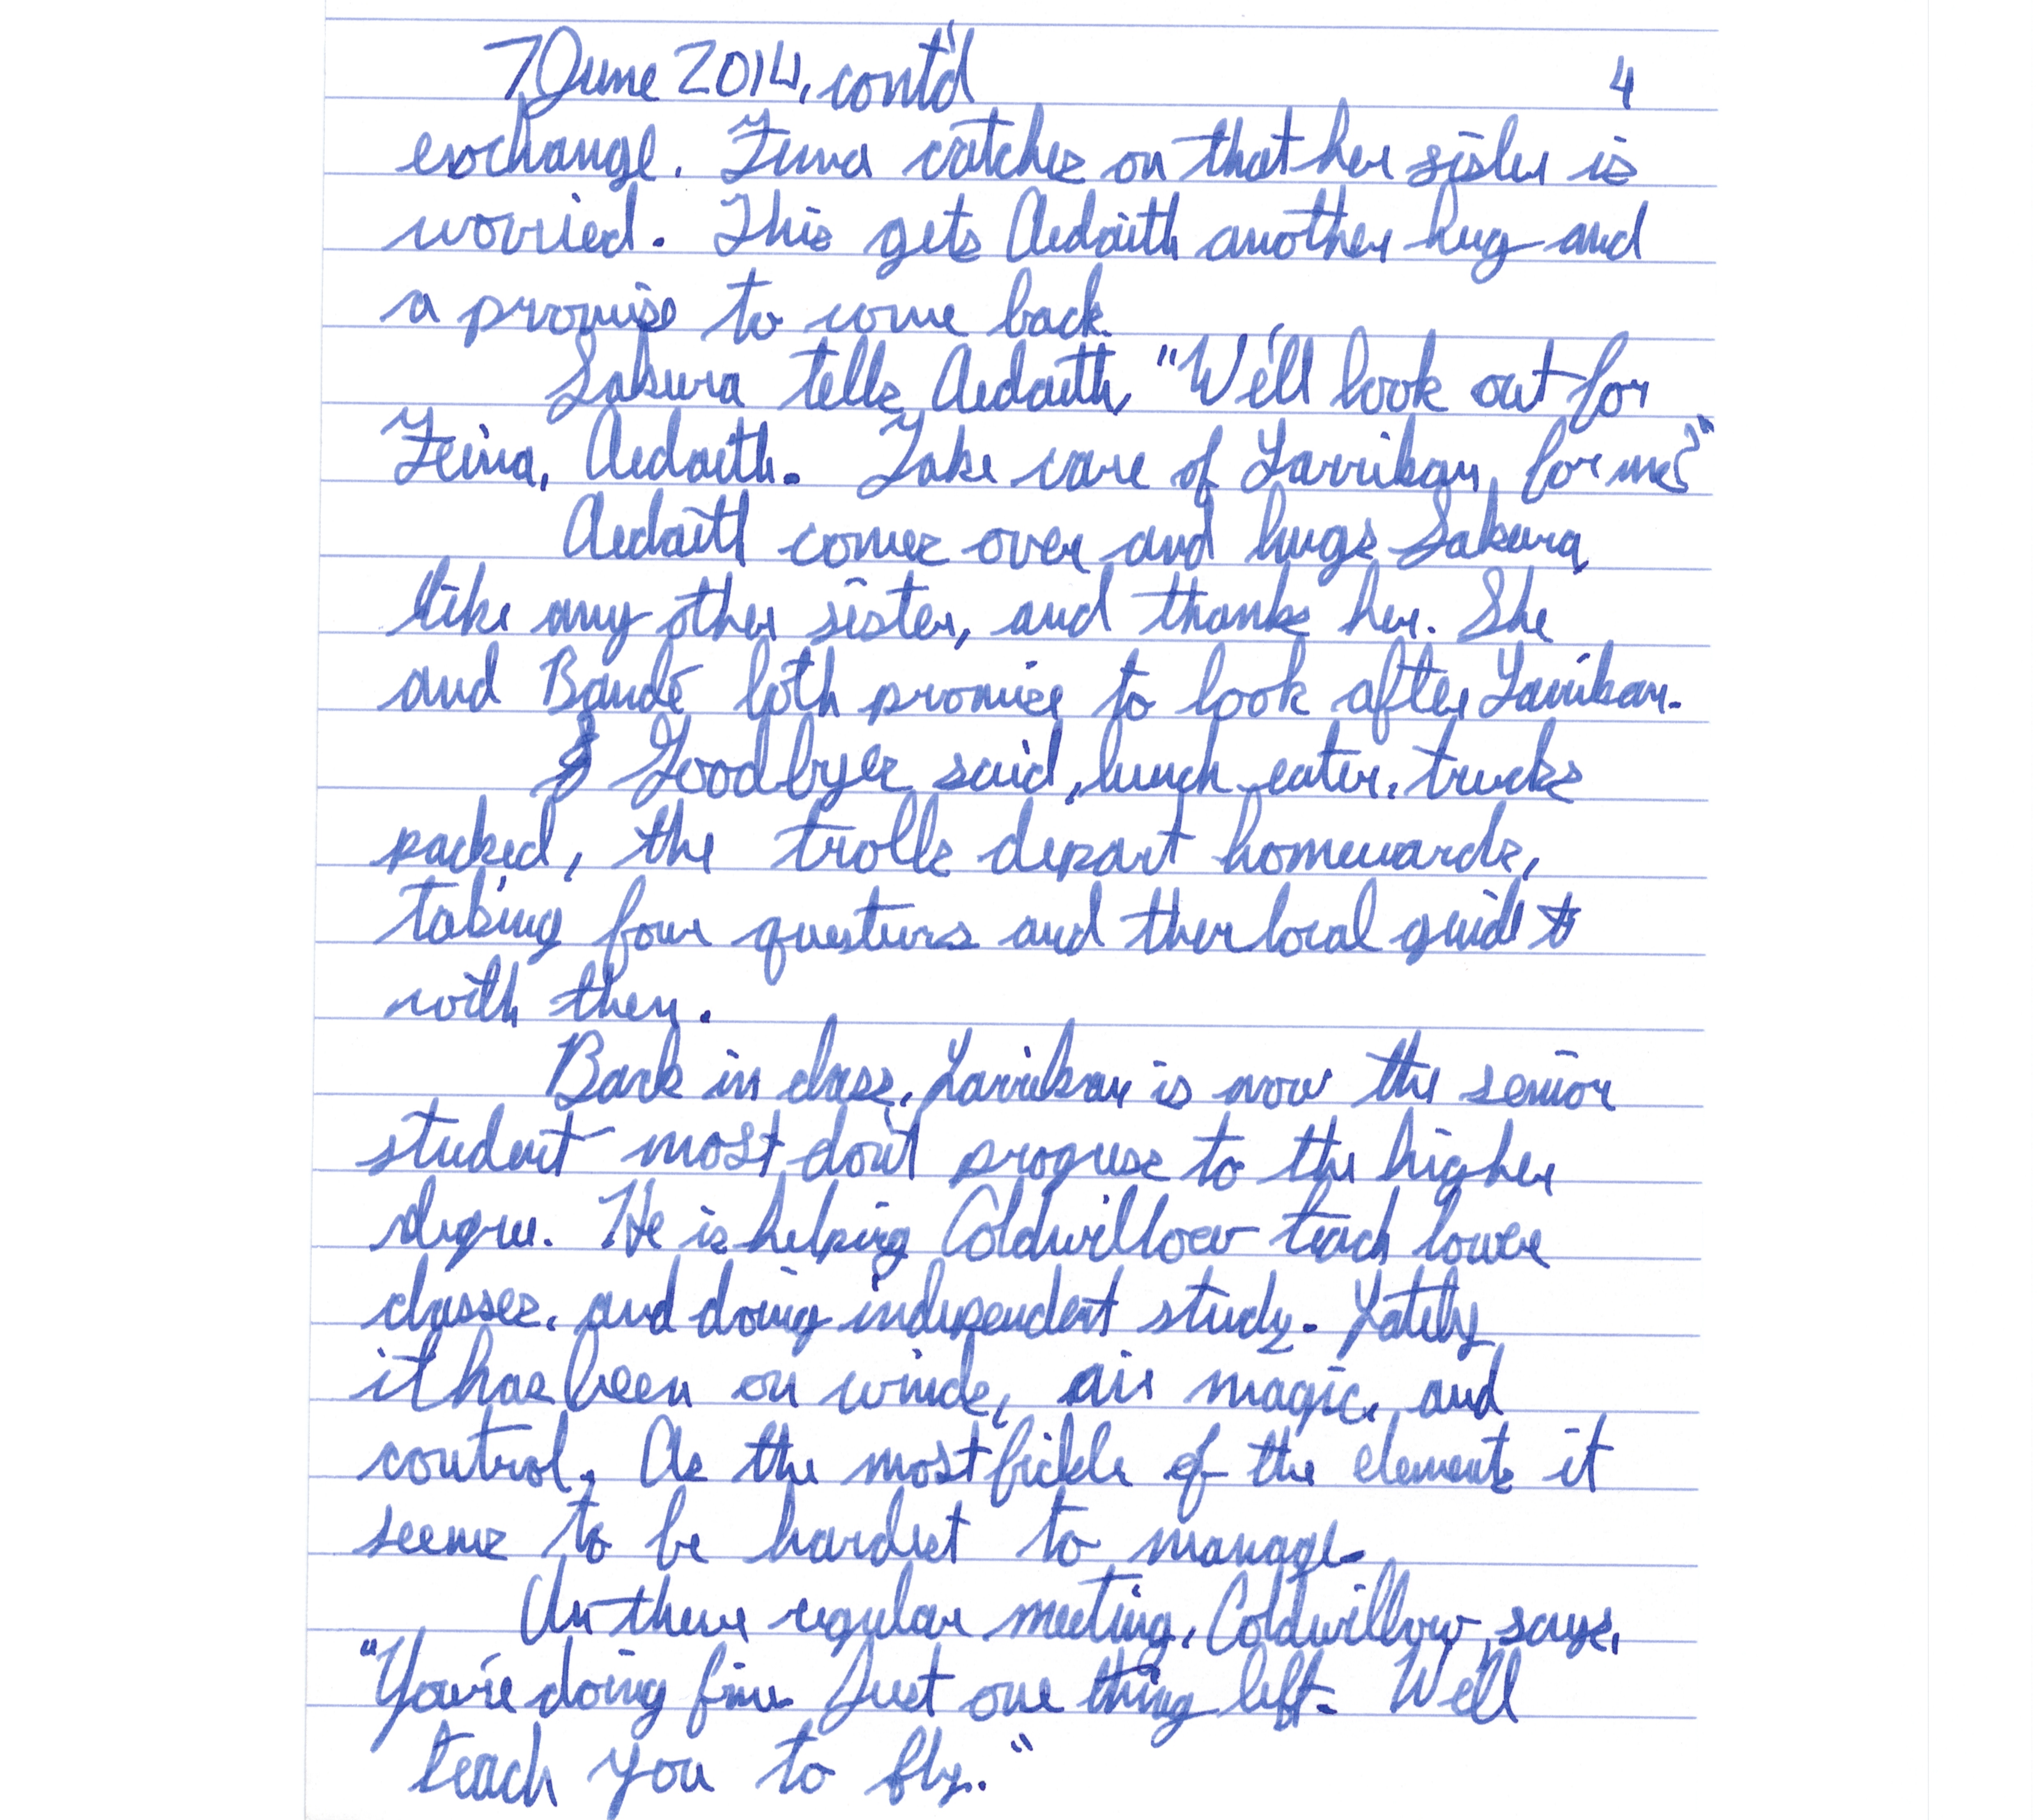 7 June 2014, cont'd 4
exchange. Zeina catches on that her sister is
worried. This gets Aedaith another hug and
a promise to come back.
Sakura tells Aedaith, "We'll look out for
Zeina, Aedaith. Take care of Larrikan, for me?"
Aedaith comes over and hugs Sakura,
like any other sister, and thanks her. She
and Bandé both promise to look after Larrikan.
Goodbyes said, lunch eaten, trucks
packed, the trolls depart homewards,
taking four questers and their local guide
with them.
Back in class, Larrikan is now the senior
student most don't progress to the higher
degree. He is helping Coldwillow teach lower
classes, and doing independent study. Lately
it has been on winds, air magic, and
control. As the most fickle of the elements it
seems to be hardest to manage.
At their regular meeting, Coldwillow says,
"You're doing fine. Just one thing left. We'll
teach you to fly."